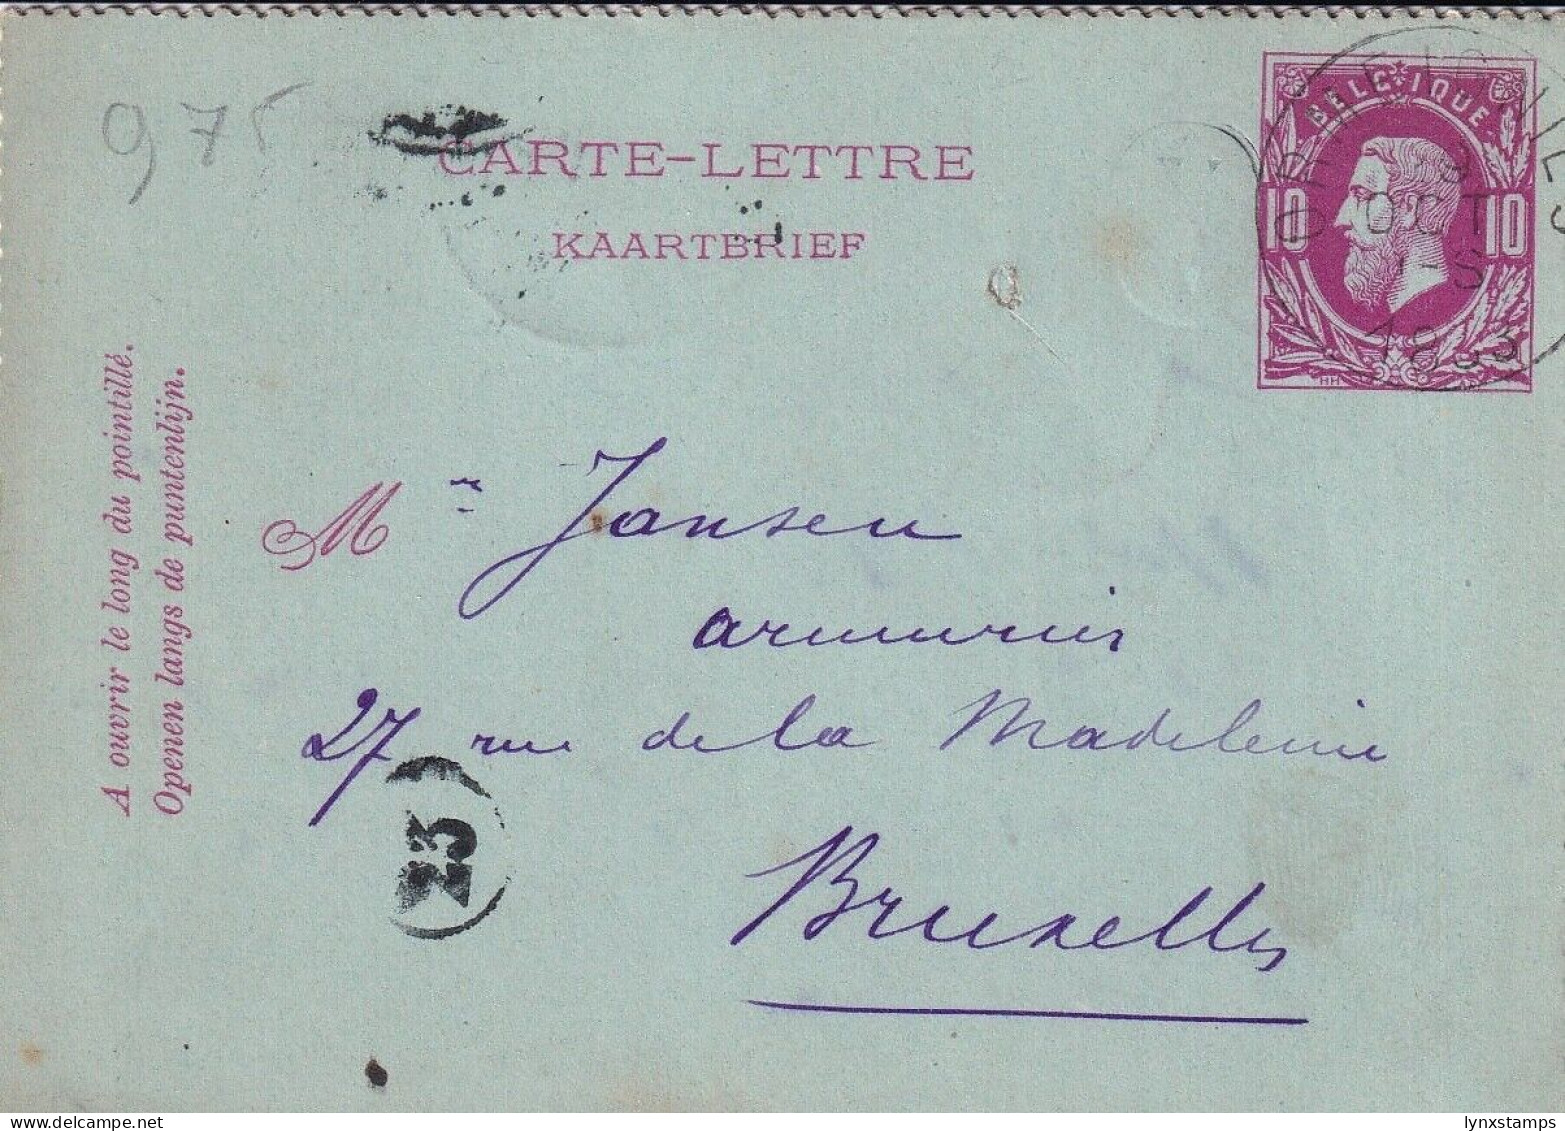 975
CARTE-LETTRE
KAARTBRIEF
BELGIQUE
10 10
HH
ORMEIGNIES
9
OCT
1-S
1883
A ouvrir le long du pointillé.
Openen langs de puntenlijn.
M r Jansen
armurier
27 rue de la Madeleine
23
Bruxelles
lynxstamps